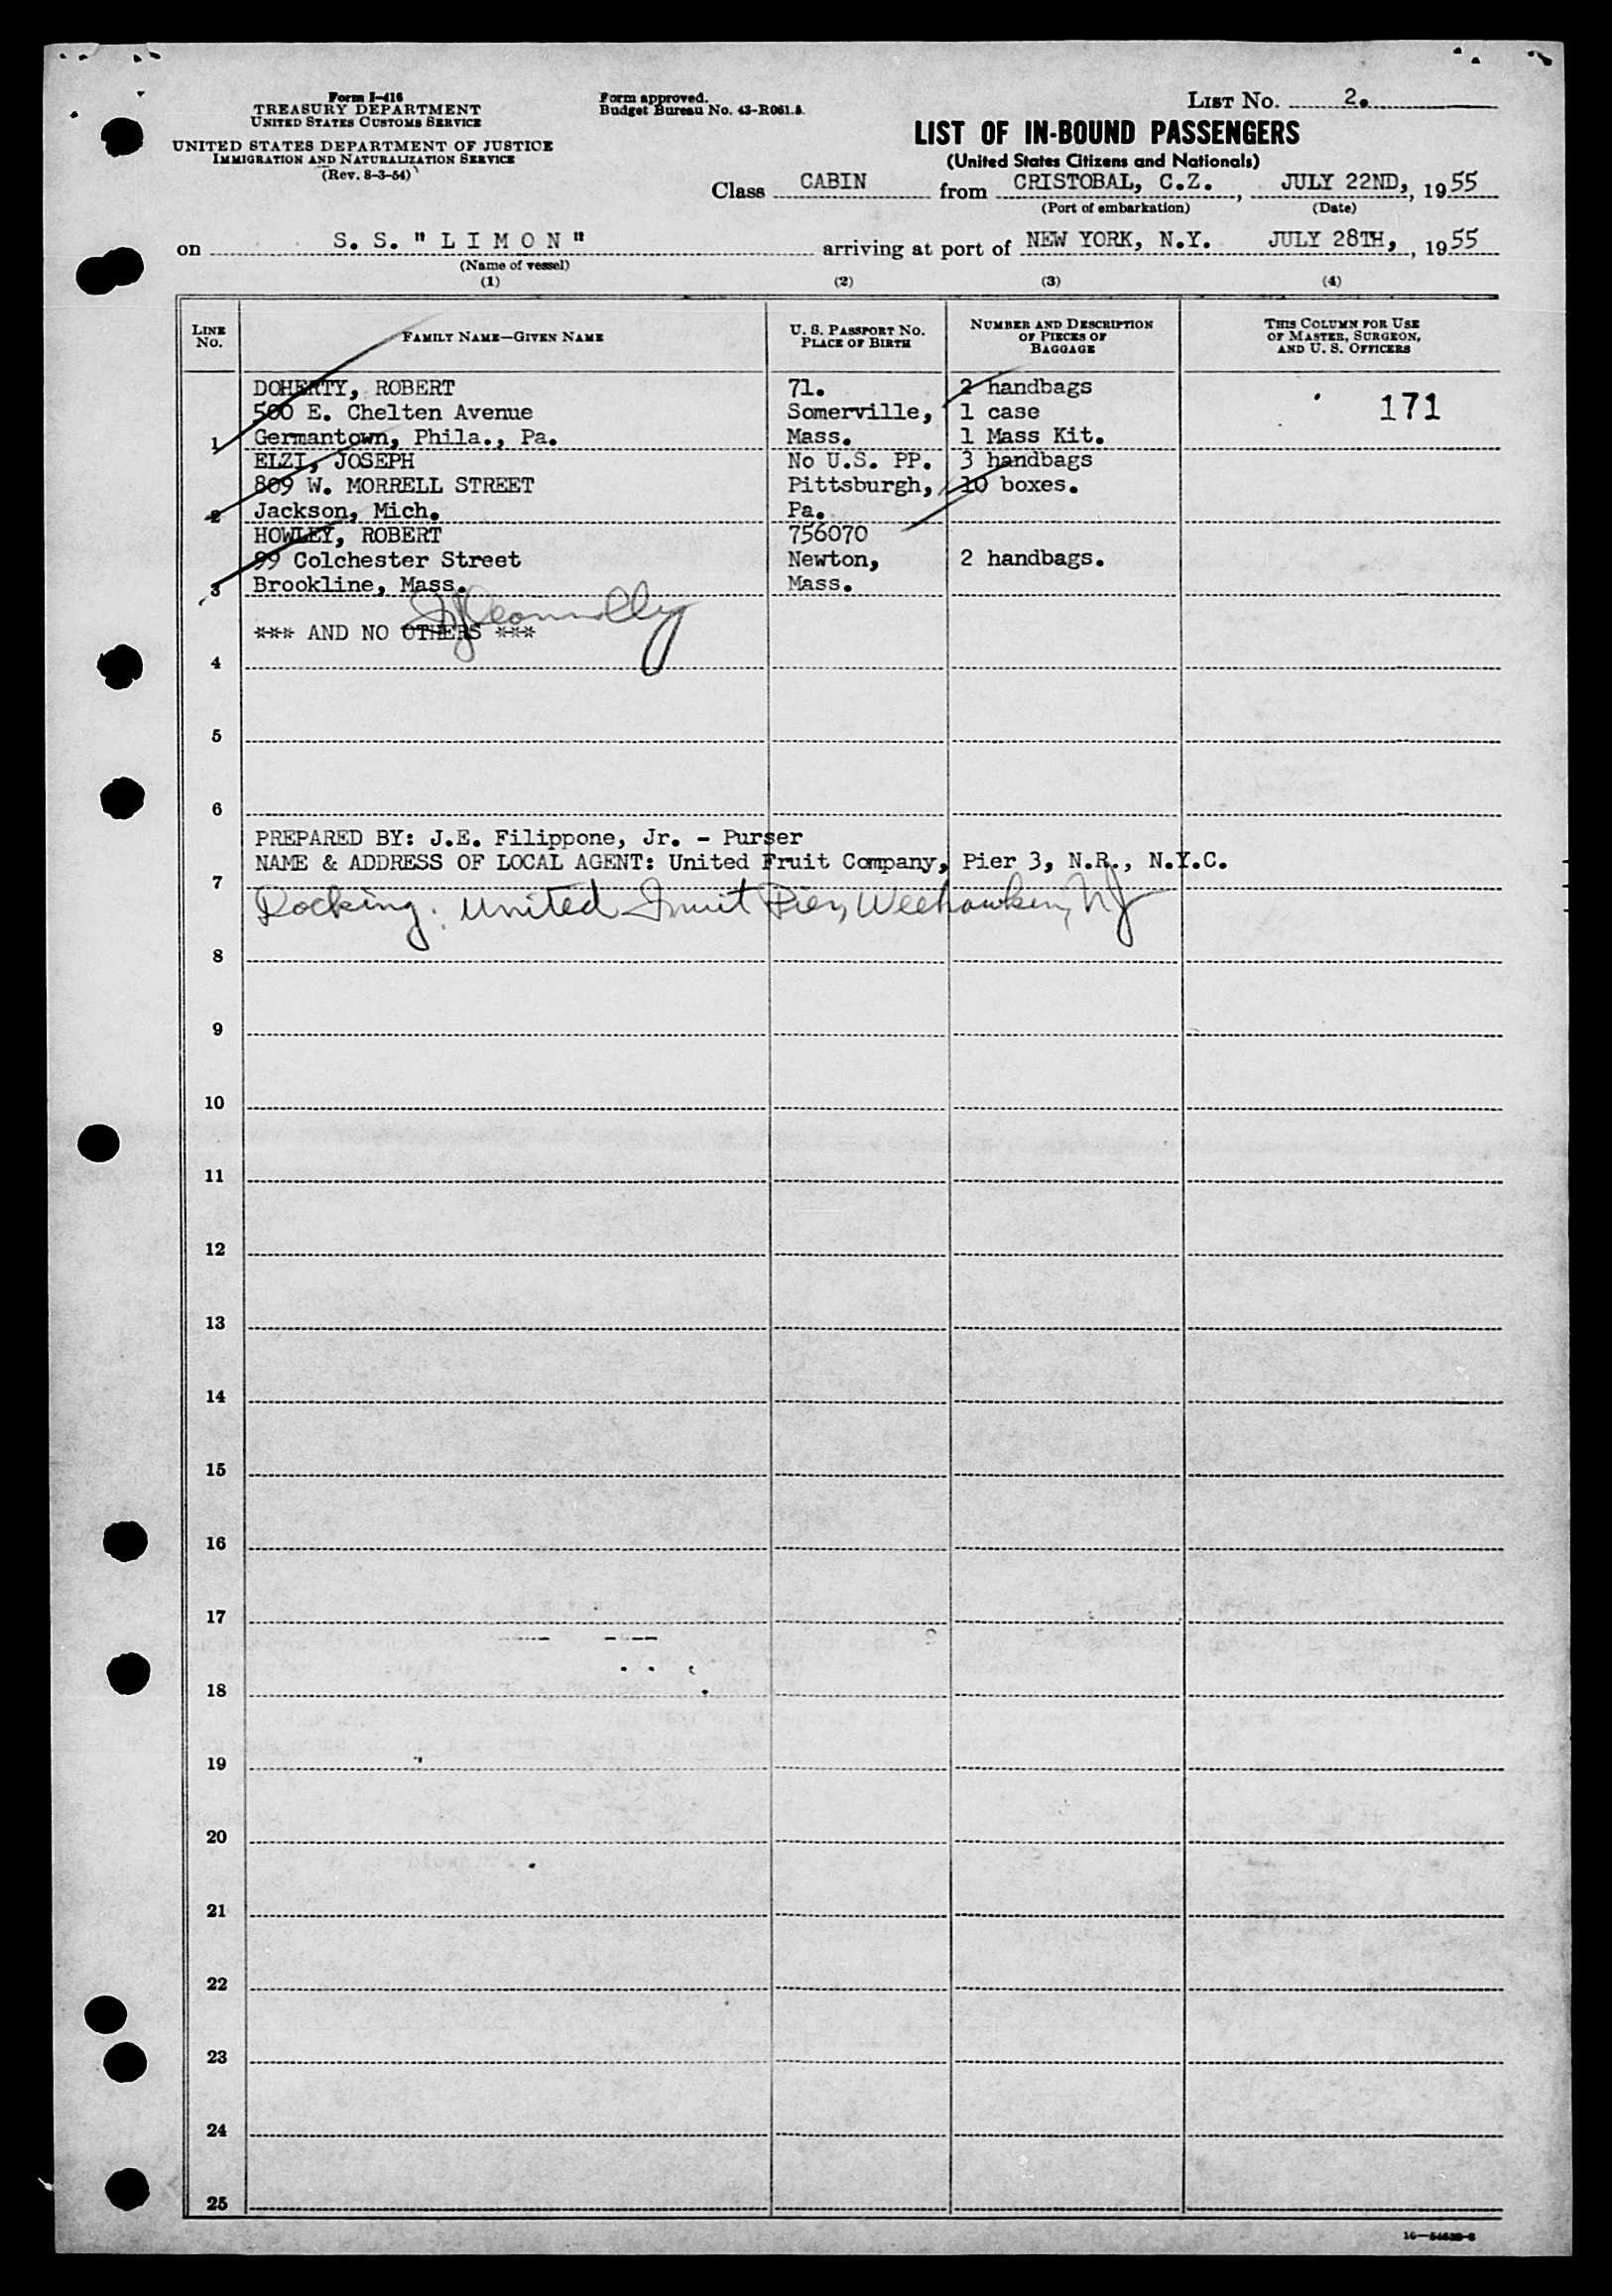 Form I-416
TREASURY DEPARTMENT
UNITED STATES CUSTOMS SERVICE
UNITED STATES DEPARTMENT OF JUSTICE
IMMIGRATION AND NATURALIZATION SERVICE
(Rev. 8-3-54)
Form approved.
Budget Bureau No. 43-R061.5.
LIST NO. 2.
LIST OF IN-BOUND PASSENGERS
(United States Citizens and Nationals)
Class CABIN from CRISTOBAL, C.Z., JULY 22ND, 1955
(Port of embarkation) (Date)
on S. S. " L I M O N " arriving at port of NEW YORK, N.Y. JULY 28TH, 1955
(Name of vessel)
(1) (2) (3) (4)
LINE NO.
FAMILY NAME—GIVEN NAME
U. S. PASSPORT NO.
PLACE OF BIRTH
NUMBER AND DESCRIPTION
OF PIECES OF
BAGGAGE
THIS COLUMN FOR USE
OF MASTER, SURGEON,
AND U. S. OFFICERS
DOHERTY, ROBERT 71. 2 handbags
500 E. Chelten Avenue Somerville, 1 case 171
1 Germantown, Phila., Pa. Mass. 1 Mass Kit.
ELZI, JOSEPH No U.S. PP. 3 handbags
809 W. MORRELL STREET Pittsburgh, 10 boxes.
2 Jackson, Mich. Pa.
HOWLEY, ROBERT 756070
99 Colchester Street Newton, 2 handbags.
3 Brookline, Mass. Mass.
*** AND NO OTHERS ***
4
5
6
PREPARED BY: J.E. Filippone, Jr. - Purser
NAME & ADDRESS OF LOCAL AGENT: United Fruit Company, Pier 3, N.R., N.Y.C.
7
Docking: United Fruit Pier, Weehawken, NJ
8
9
10
11
12
13
14
15
16
17
18
19
20
21
22
23
24
25